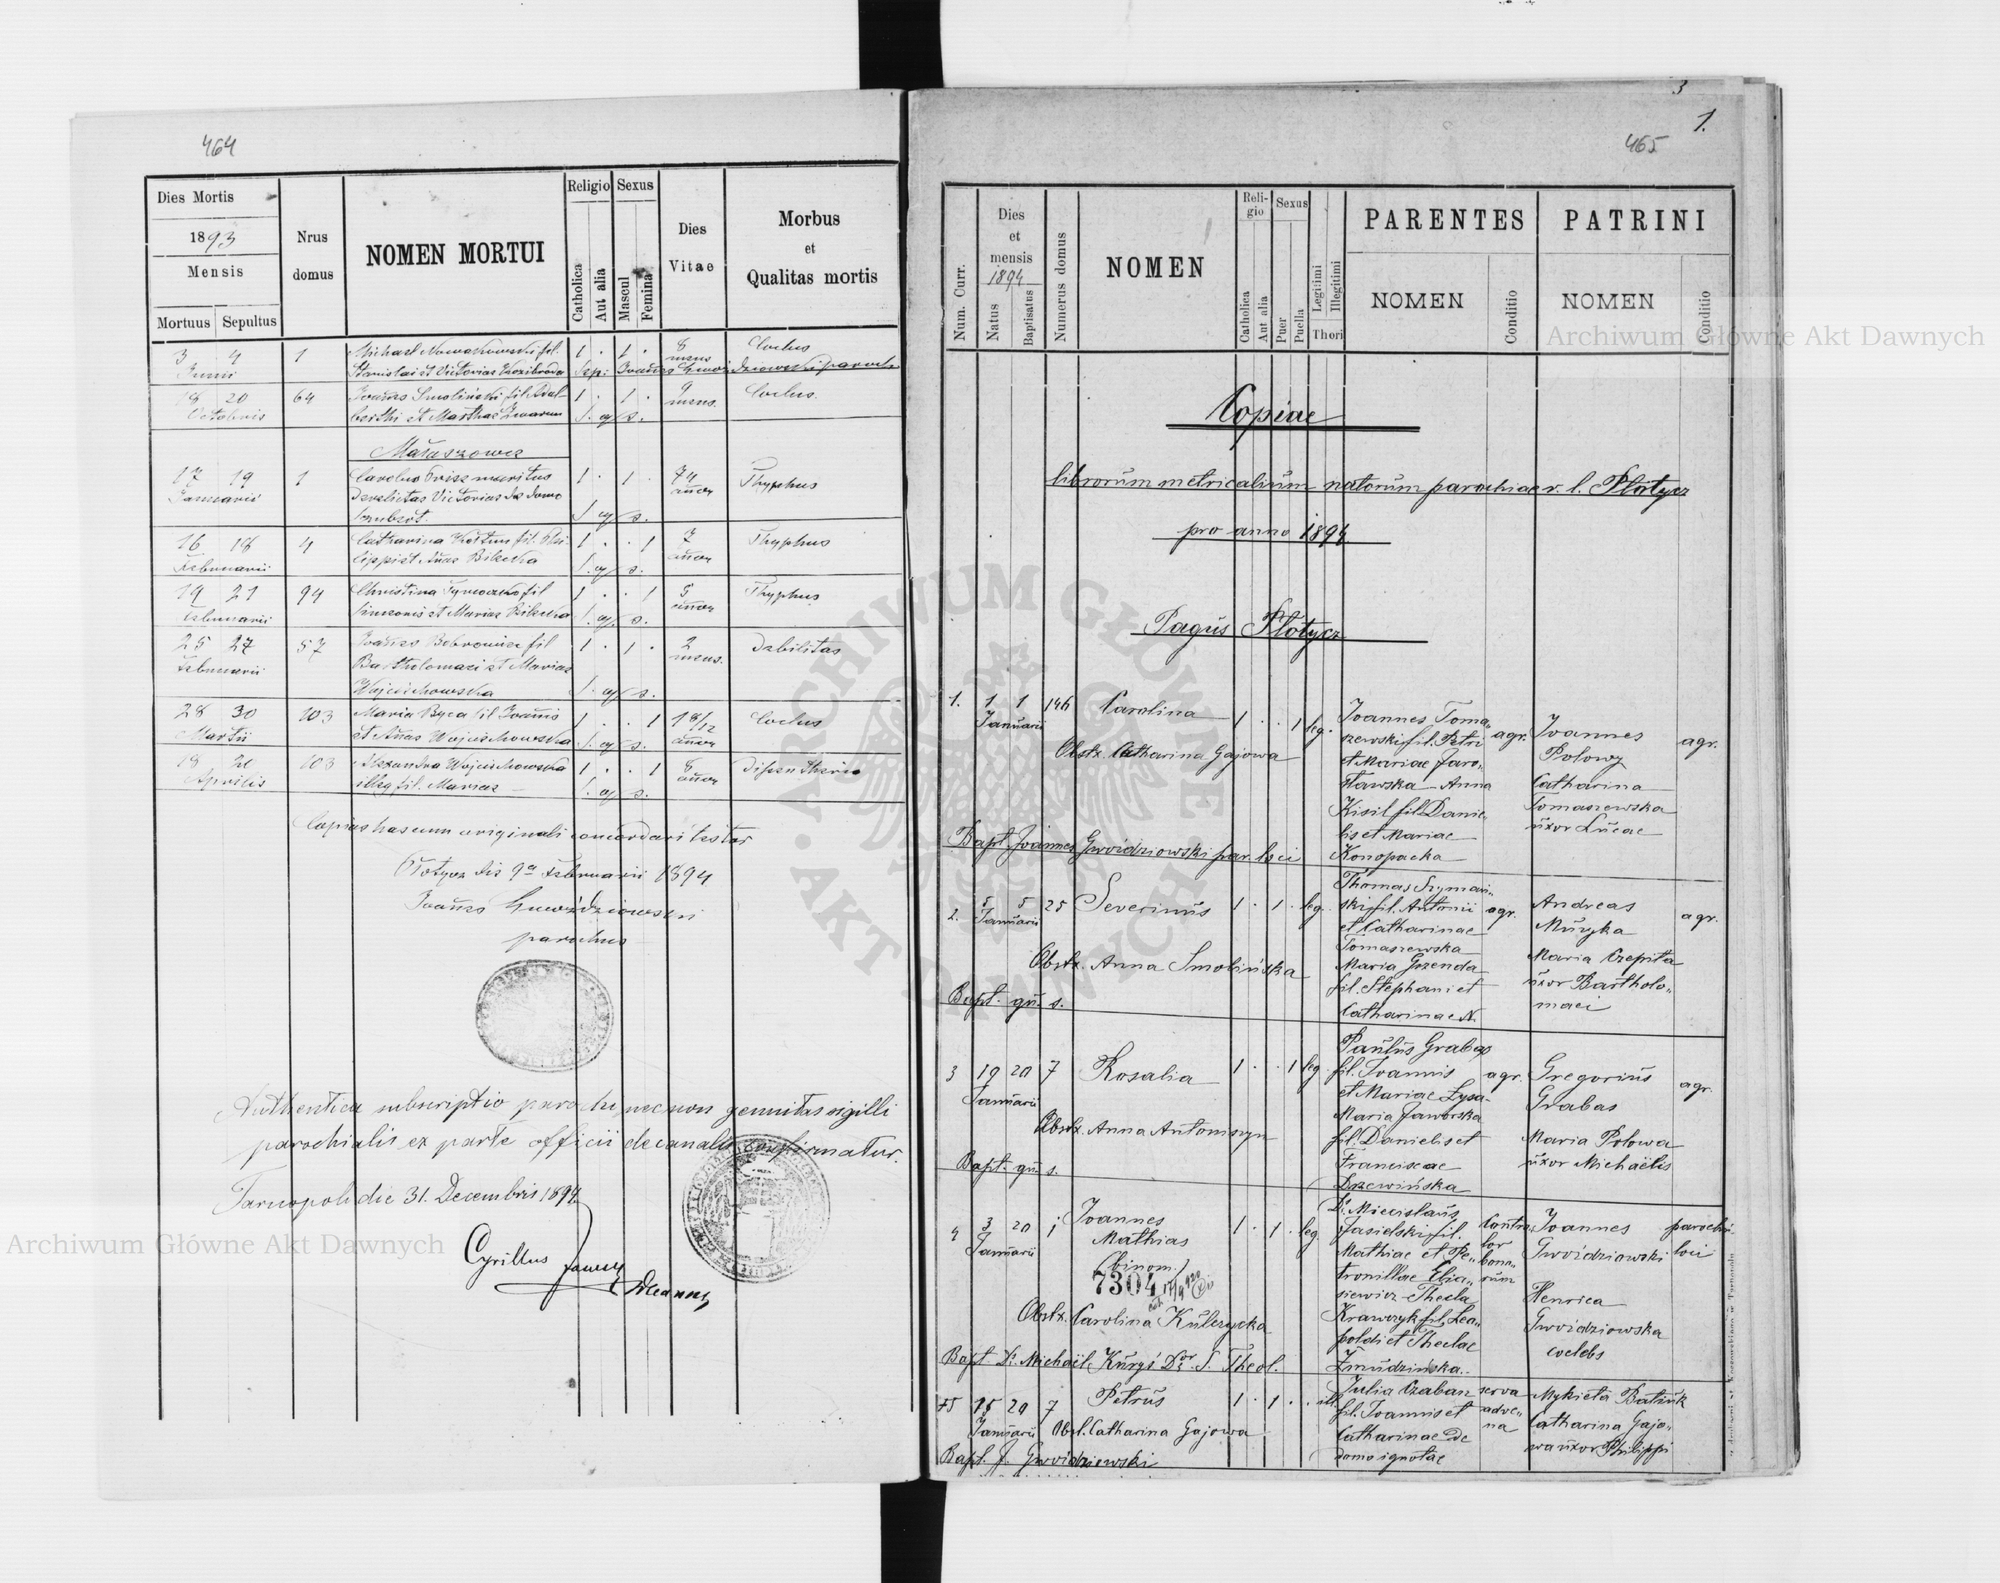 464
Dies Mortis
1893
Mensis
Mortuus Sepultus
Nrus
domus
NOMEN MORTUI
Religio
Catholica
Aut alia
Sexus
Mascul
Femina
Dies
Vitae
Morbus
et
Qualitas mortis
3 4 1 Michael Nowakowski fil. 1 . 1 . 8 Coclus
Junii Stanislai et Victorias Kozibroda Sep: Joannes Gwoździowski parochus
mens
18 20 64 Joannes Smoliński fil. Adal- 1 . 1 . 9 Coclus.
Octobris berthi et Marthae S. q. s. mens.
Małaszowce
17 19 1 Carolus maritus 1 . 1 . 74 Thyphus
Januarii derelictas Victorias de domo annor
S. q. s.
16 18 4 Catharina fil. Phi- 1 . . 1 7 Thyphus
Februarii lippi et Annae Bilecka S. q. s. annor
19 21 94 Christina fil 1 . . 1 5 Thyphus
Februarii Simeonis et Mariae Bilecka S. q. s. annor
25 27 57 Joannes fil 1 . 1 . 2 Debilitas
Februarii Bartholomaei et Mariae mens.
Wojciechowska S. q. s.
28 30 103 Maria Byca fil Joannis 1 . . 1 1 8/12 Coclus
Martii et Annae Wojciechowska S. q. s. annor
18 20 103 Alexandra Wojciechowska 1 . . 1 8 Disentheria
Aprilis illeg fil. Mariae S. q. s. annor
Copias has cum originali concordari testor
Płotycz die 9a Februarii 1894
Joannes Gwoździowski
parochus
Authentica subscriptio parochi, nec non genuitas sigilli
parochialis ex parte officii decanalis confirmatur.
Tarnopoli die 31. Decembris 1894.
Cyrillus
Decanus
3
1.
465
Num. Curr.
Dies
et
mensis
1894
Natus
Baptisatus
Numerus domus
NOMEN
Reli-
gio
Catholica
Aut alia
Sexus
Puer
Puella
Legitimi
Illegitimi
Thori
PARENTES
NOMEN
Conditio
PATRINI
NOMEN
Conditio
Copiae
librorum metricalium natorum parochiae r. l. Płotycz
pro anno 1894
Pagus Płotycz
1. 1 1 146 Carolina 1 . . 1 leg. Joannes Toma- agr. Joannes agr.
Januarii szewski fil. Petri Polowy
Obstx. Catharina Gajowa et Mariae Jaro-
sławska - Anna Catharina
Kisil fil. Danie- Tomaszewska
lis et Mariae uxor Lucae
Bapt. Joannes Gwoździowski par. loci Konopacka
2. 5 5 25 Severinus 1 . 1 . leg. Thomas Szymań- agr. Andreas agr.
Januarii ski fil. Antonii Muzyka
et Catharinae
Tomaszewska Maria Czepita
Obstx. Anna Smolińska Maria Gzenda uxor Bartholo-
fil. Stephani et maei
Bapt. qu. s. Catharinae N.
3 19 20 7 Rosalia 1 . . 1 leg. Paulus Grabas agr. Gregorius agr.
Januarii fil. Joannis Grabas
et Mariae Łysa-
Obstx. Anna Antoniszyn Maria Jaworska
fil. Danielis et Maria Polowa
Bapt. qu. s. Franciscae uxor Michaëlis
Drzewińska
4 3 20 1 Joannes 1 . 1 . leg. Dr. Miecislaus Contro- Joannes parochus
Januarii Mathias Jasielski fil. lor Gwoździowski loci
(binom.) Mathiae et Pe- bono-
7304 tronillae Elia- rum
siewicz - Thecla Henrica
Obstx. Carolina Kulczycka Krawczyk fil. Leo- Gwoździowska
poldi et Theclae coelebs
Bapt Dr. Michaël Kuryś Dor. S. Theol. Żmudzińska.
5 15 20 7 Petrus 1 . 1 . . ill. Julia Czaban serva Mykieta Batiuk
Januarii Obst. Catharina Gajowa fil. Joannis et adve- Catharina Gajo-
Catharinae de na wa uxor Philippi
Bapt. J. Gwoździowski domo ignotae
Archiwum Główne Akt Dawnych
Archiwum Główne Akt Dawnych
ARCHIWUM GŁÓWNE AKT DAWNYCH